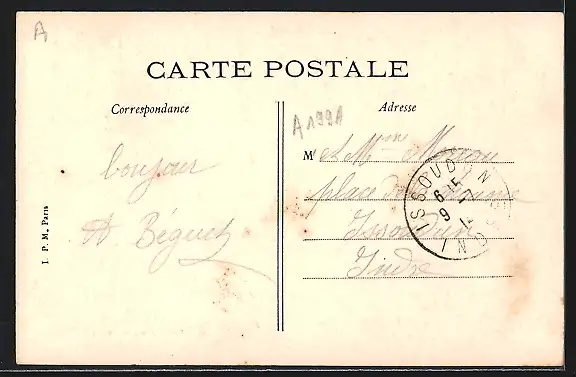 A
CARTE POSTALE
Correspondance
Adresse
A199A
M et Mme
bonjour
place de
A Béguet
Issoudun
Indre
ISSOUDUN
6 15
9 -7
INDRE
I. P. M. Paris